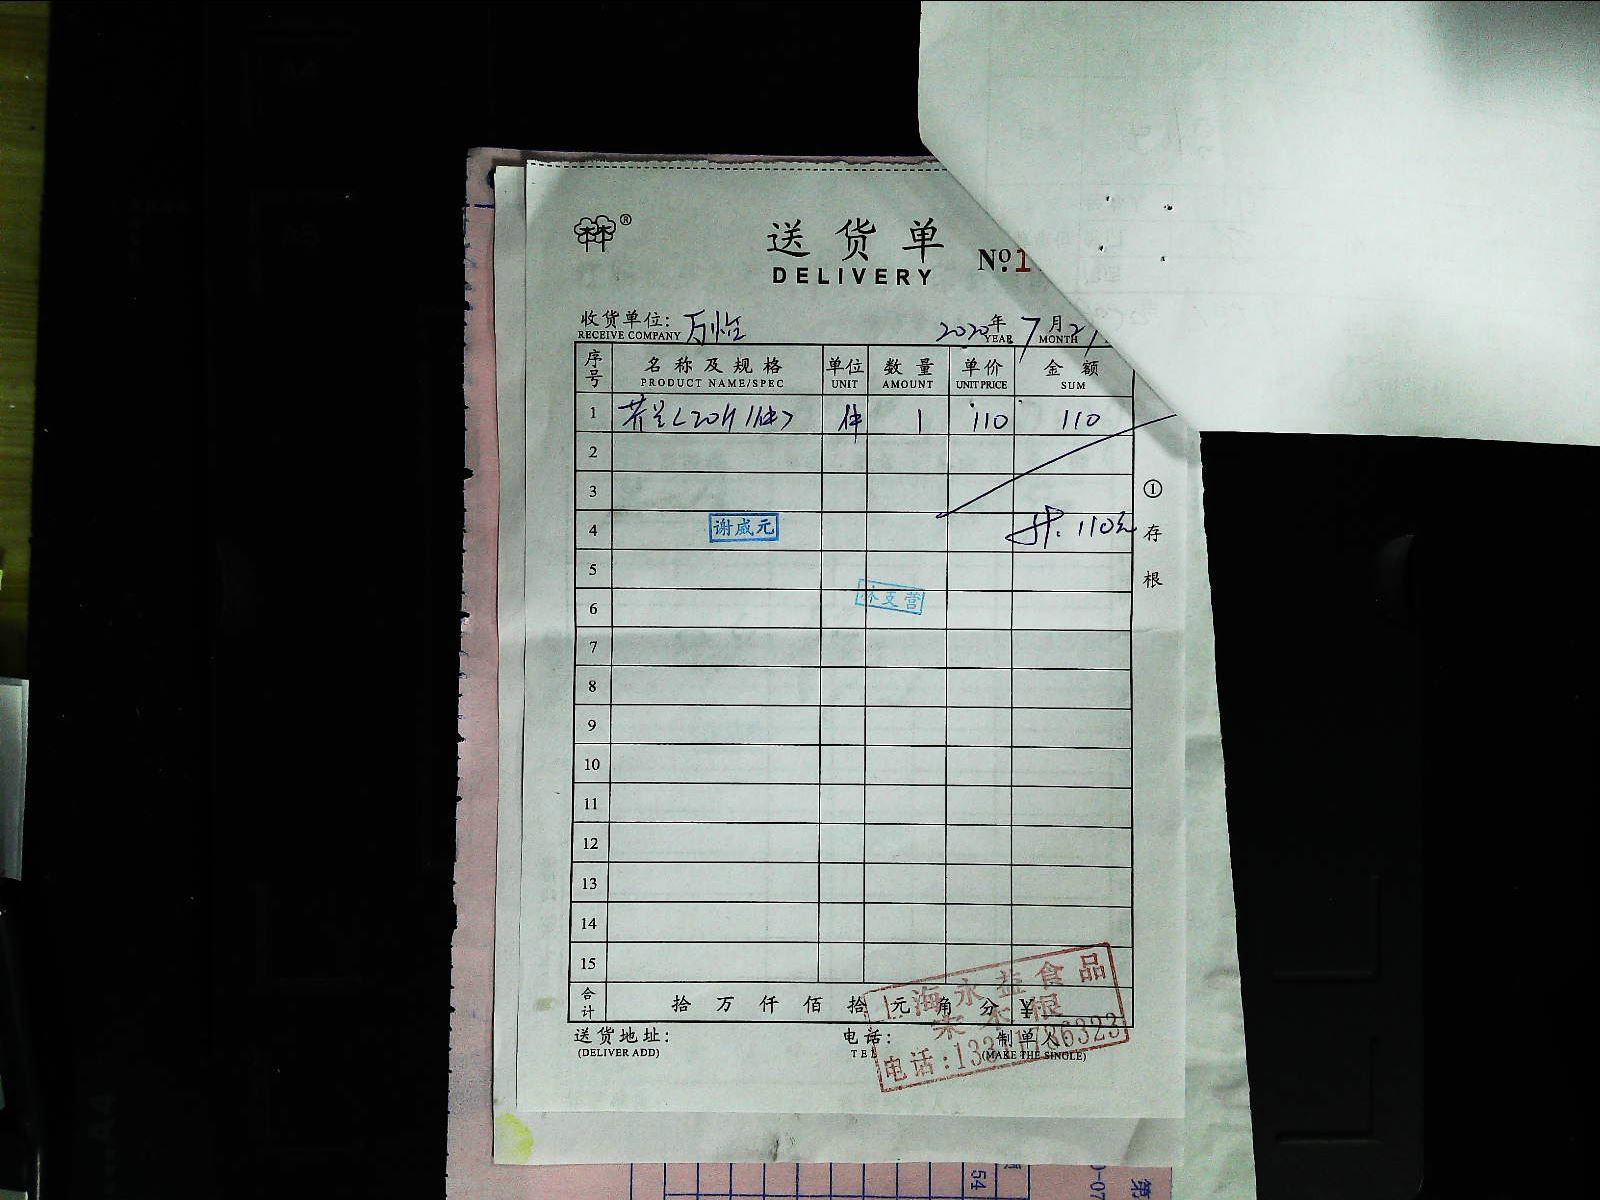 ®
送货单
DELIVERY
No.1
收货单位: 万怡
RECEIVE COMPANY
2020年7月2
YEAR MONTH
序号 名称及规格 单位 数量 单价 金额
PRODUCT NAME/SPEC UNIT AMOUNT UNIT PRICE SUM
1 件 1 110 110
2
3
4 谢威元 共. 110元
5
6
7
8
9
10
11
12
13
14
15
合计 拾万仟佰拾元角分 ¥
送货地址: 电话: 制单人
(DELIVER ADD) TEL (MAKE THE SINGLE)
①存根
上海永益食品
电话:133 786323
54